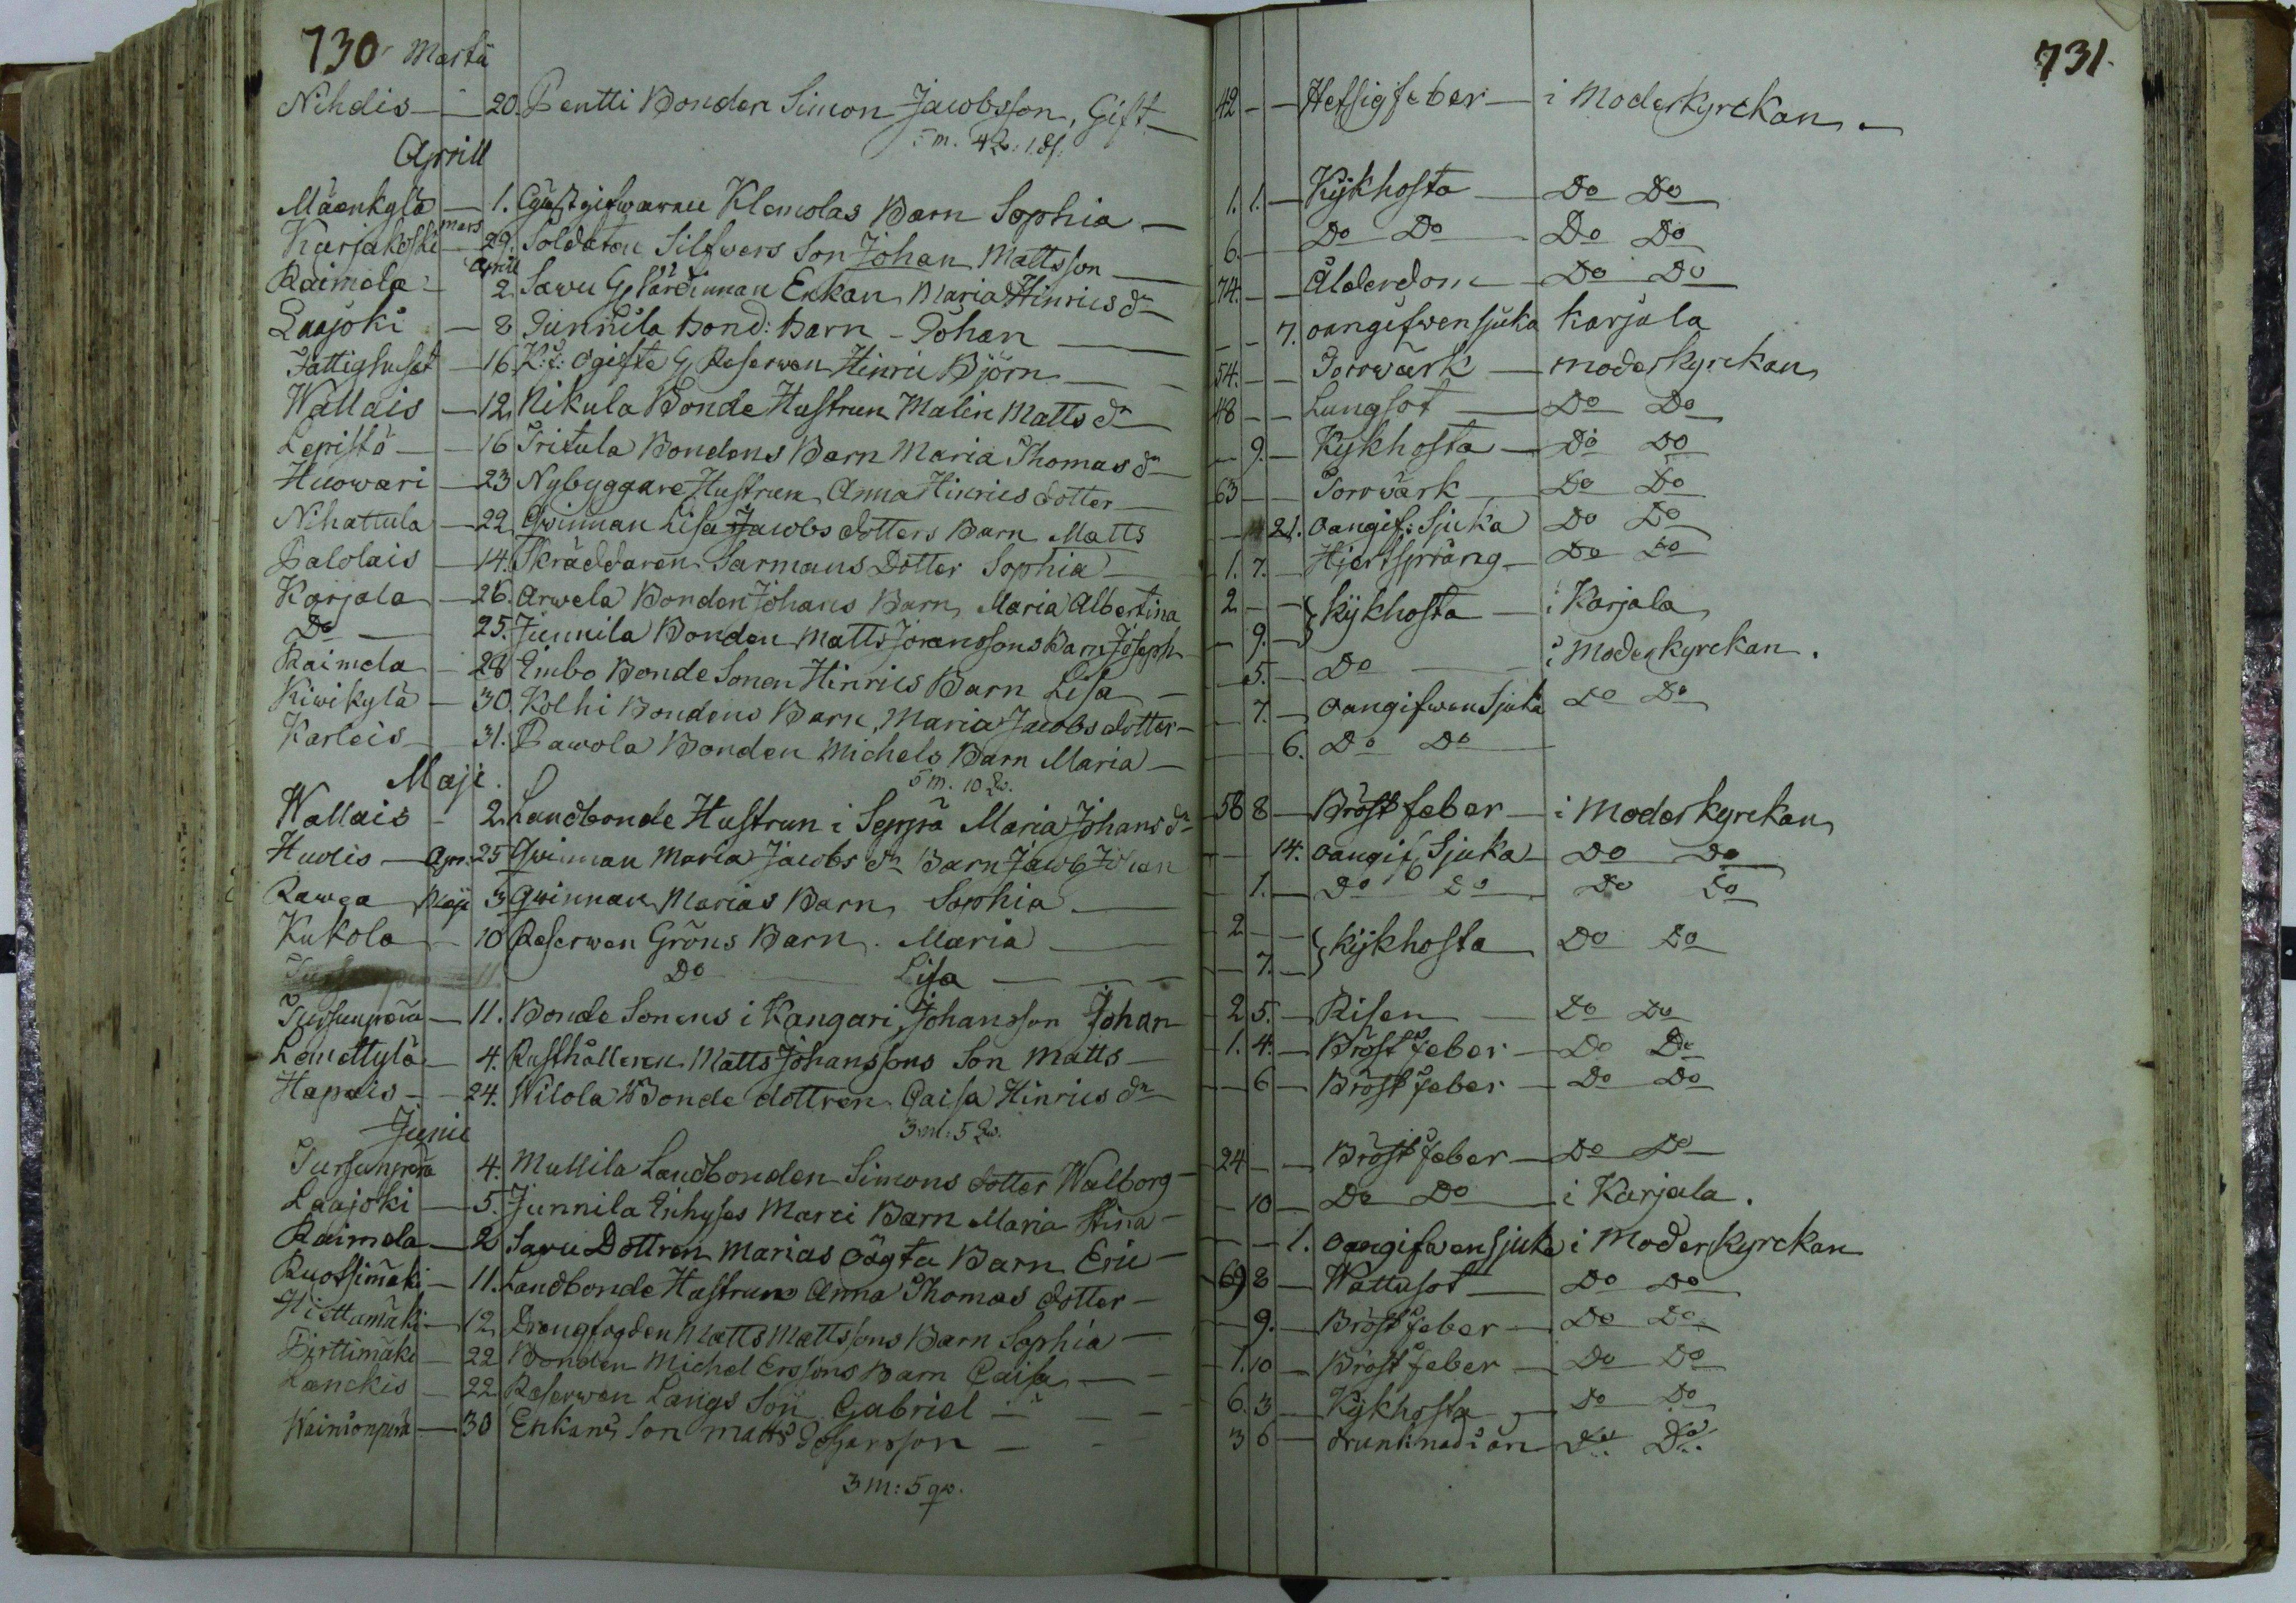 730 Martii
Nihdis — 20. Pentti Bonden Simon Jacobsson, Gift —
5 m. 4 Qv: 1.
Aprill
Mäenkylä — 1. Gästgifwaren Klemolas Barn Sophia —
Karjakoski mars 29. Soldaten Silfwers Son Johan Mattsson —
Raimela April 2 Sawu Enkan Maria Hinrics dr
Laajoki — 8 Junnila Bond: Barn – Johan —
Fattighuset — 16 ogifte Reserwen Hinric Björn —
Wallais — 12 Nikula Bonde Hustrun Malin Matts dr
Lepistö — 16 Iritula Bondens Barn Maria Thomas dr
Huowari — 23 Nybyggare Hustrun Anna Hinrics dotter —
Nihattula — 22 Qwinnan Lisa Jacobs dotters Barn Matts
Palolais — 14. Skräddaren Sarmans Dotter Sophia —
Karjala — 26. Arwela Bonden Johans Barn Maria Albertina
Do — 25. Junnila Bonden Matts Joranssons Barn Joseph
Raimela — 28 Eimbo Bonde Sonen Hinrics Barn Lisa —
Kiwikylä — 30. Kolhi Bondens Barn, Maria Jacobs dotter —
Karleis — 31. Pawola Bonden Michels Barn Maria —
5 m. 10 Qv.
Maji.
Wallais — 2. Landbonde Hustrun i Seppä Maria Johans dr
Huolis — Apr. 25 Qwinnan Maria Jacobs dr Barn Jacob Johan
Rawea Maji 3 Qwinnan Marias Barn Sophia —
Kukola — 10 Reserwen Gröns Barn. Maria —
11. Do Lisa —
Tursunperä — 11. Bonde Sonens i Kangari Johansson Johan
Lemettylä — 4. Rusthållaren Matts Johanssons Son Matts —
Hapois — 24. Wilola Bonde dottren Caisa Hinrics dr
3 m: 5 Qv.
Junii
Tursunperä 4. Mullila Landbonden Simons dotter Walborg —
Laajoki — 5. Junnila Inhyses Marci Barn Maria Stina —
Raimela — 2 Sawu Dottren Marias oägta Barn Eric —
Ruotsimäki — 11. Landbonde Hustrun Anna Thomas dotter —
Hiettamäki — 12 Drengfogden Matts Mattssons Barn Sophia —
Pirttimäki — 22 Bonden Michel Erssons Barn Caisa —
Lanckis — 22 Reserwen Langs Son Gabriel —
Wainionperä — 30 Enkans Son Matts Johansson —
3 m: 5 qv.
731.
42 — — Hetsigfeber — i Moderkyrckan —
1. 1. — Kykhosta — Do Do
6. — Do Do — Do Do
74. — — Ålderdom — Do Do
— — 7. oangifwen sjuka Karjala
54. — — Torrwärk — moderkyrckan
48 — — Lungsot — Do Do
— 9. — Kykhosta — Do Do
63 — — Torrwärk — Do Do
— 21. oangif: Sjuka Do Do
1. 7. — Hjertspräng — Do Do
2 — — } Kykhosta — i Karjala
— 9. —
— 5. — Do — i Moderkyrckan.
— 7. — oangifwen Sjuka Do Do
— — 6. Do Do —
58 8 — Bröstfeber — i Moderkyrckan
— — 14. oangif, Sjuka — Do Do
— 1. — Do Do — Do Do
2 — — } Kykhosta Do Do
— 7. —
2 5. — Risen — Do Do
1. 4. — Bröstfeber — Do Do
— 6 — Bröstfeber — Do Do
24 — — Bröstfeber — Do Do
— 10 — Do Do — i Karjala.
— — 1. oangifwen sjuka i Moderkyrckan
69 8 — Wattusot — Do Do
— 9. — Bröstfeber — Do Do
1. 10 — Bröstfeber — Do Do
6. 3 — Kykhosta — Do Do
3 6 — drunknad i ån Do Do.